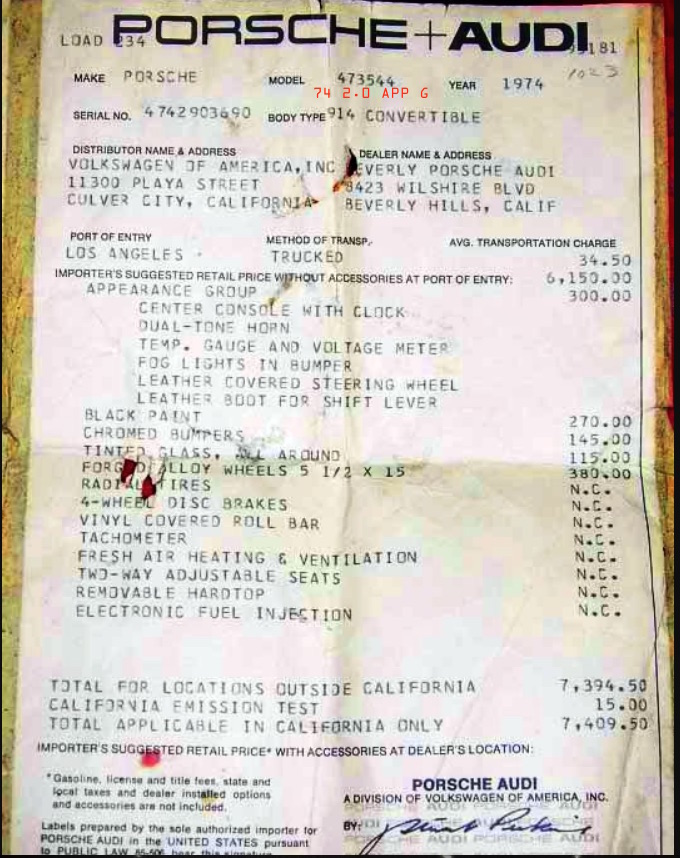 PORSCHE+AUDI
LOAD 234
181
1023
MAKE PORSCHE MODEL 473544 YEAR 1974
74 2.0 APP G
SERIAL NO. 4742903690 BODY TYPE 914 CONVERTIBLE
DISTRIBUTOR NAME & ADDRESS DEALER NAME & ADDRESS
VOLKSWAGEN OF AMERICA, INC EVERLY PORSCHE AUDI
11300 PLAYA STREET 8423 WILSHIRE BLVD
CULVER CITY, CALIFORNIA BEVERLY HILLS, CALIF
PORT OF ENTRY METHOD OF TRANSP. AVG. TRANSPORTATION CHARGE
LOS ANGELES TRUCKED 34.50
IMPORTER'S SUGGESTED RETAIL PRICE WITHOUT ACCESSORIES AT PORT OF ENTRY: 6,150.00
APPEARANCE GROUP 300.00
CENTER CONSOLE WITH CLOCK
DUAL-TONE HORN
TEMP. GAUGE AND VOLTAGE METER
FOG LIGHTS IN BUMPER
LEATHER COVERED STEERING WHEEL
LEATHER BOOT FOR SHIFT LEVER
BLACK PAINT 270.00
CHROMED BUMPERS 145.00
TINTED GLASS, ALL AROUND 115.00
FORGED ALLOY WHEELS 5 1/2 X 15 380.00
RADIAL TIRES N.C.
4-WHEEL DISC BRAKES N.C.
VINYL COVERED ROLL BAR N.C.
TACHOMETER N.C.
FRESH AIR HEATING & VENTILATION N.C.
TWO-WAY ADJUSTABLE SEATS N.C.
REMOVABLE HARDTOP N.C.
ELECTRONIC FUEL INJECTION N.C.
TOTAL FOR LOCATIONS OUTSIDE CALIFORNIA 7,394.50
CALIFORNIA EMISSION TEST 15.00
TOTAL APPLICABLE IN CALIFORNIA ONLY 7,409.50
IMPORTER'S SUGGESTED RETAIL PRICE* WITH ACCESSORIES AT DEALER'S LOCATION:
*Gasoline, license and title fees, state and
local taxes and dealer installed options
and accessories are not included.
PORSCHE AUDI
A DIVISION OF VOLKSWAGEN OF AMERICA, INC.
BY:
PORSCHE AUDI PORSCHE AUDI
Labels prepared by the sole authorized importer for
PORSCHE AUDI in the UNITED STATES pursuant
to PUBLIC LAW 85-506 bear this signature